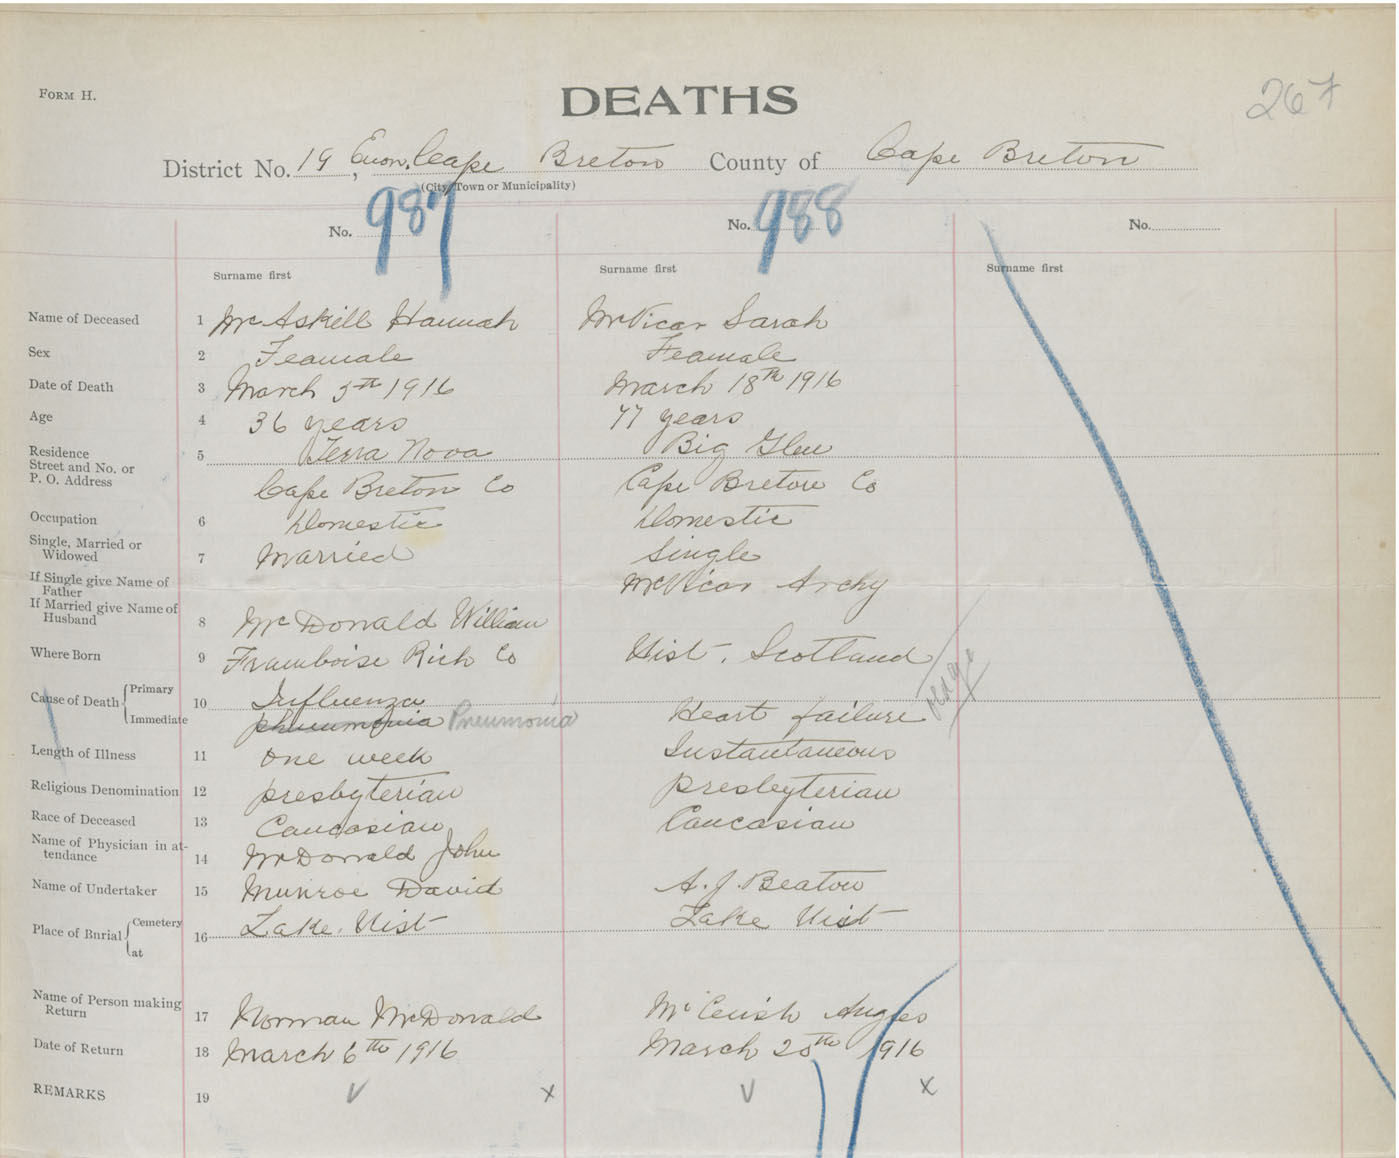 FORM H.
DEATHS
267
District No. 19, Enon, Cape Breton County of Cape Breton
(City, Town or Municipality)
No. 987 No. 988 No.
Surname first Surname first Surname first
Name of Deceased 1 McAskill Hannah McVicar Sarah
Sex 2 Feamale Feamale
Date of Death 3 March 5th 1916 March 18th 1916
Age 4 36 years 77 years
Residence 5 Terra Nova Big Glen
Street and No. or
P. O. Address Cape Breton Co Cape Breton Co
Occupation 6 Domestic Domestic
Single, Married or
Widowed 7 Married Single
If Single give Name of
Father McVicar Archy
If Married give Name of
Husband 8 McDonald William
Where Born 9 Framboise Rich Co Uist, Scotland
Cause of Death Primary 10 Influenza
Immediate phneumonia Pneumonia Heart failure
Length of Illness 11 one week Instantaneous
Religious Denomination 12 presbyterian presbyterian
Race of Deceased 13 Caucasian Caucasian
Name of Physician in at-
tendance 14 McDonald John
Name of Undertaker 15 Munroe David A. J. Beaton
Place of Burial Cemetery 16 Lake Uist Lake Uist
at
Name of Person making
Return 17 Norman McDonald McCuish Angus
Date of Return 18 March 6th 1916 March 20th 1916
REMARKS 19 V x V x